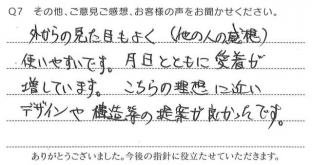 Q7 その他、ご意見ご感想、お客様の声をお聞かせください。
外からの見た目もよく（他の人の感想）
使いやすいです。月日とともに愛着が
増しています。こちらの理想に近い
デザインや構造等の提案が良かったです。
ありがとうございました。今後の指針に役立たせていただきます。